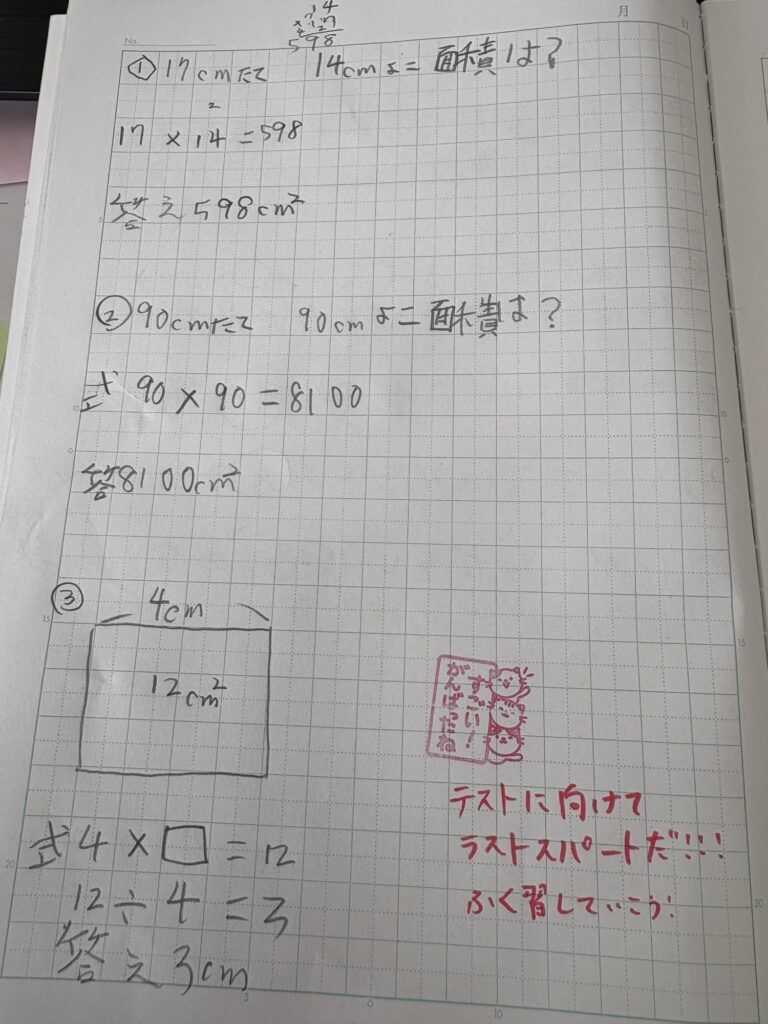 14
598
No.
月 日
① 17cmたて 14cmよこ 面積は?
17 × 14 = 598
答え 598cm²
② 90cmたて 90cmよこ 面積は?
式 90 × 90 = 8100
答 8100cm²
③
4cm
12cm²
式 4 × □ = 12
12 ÷ 4 = 3
答え 3cm
すごい!
がんばったね
テストに向けて
ラストスパートだ!!!
ふく習していこう!